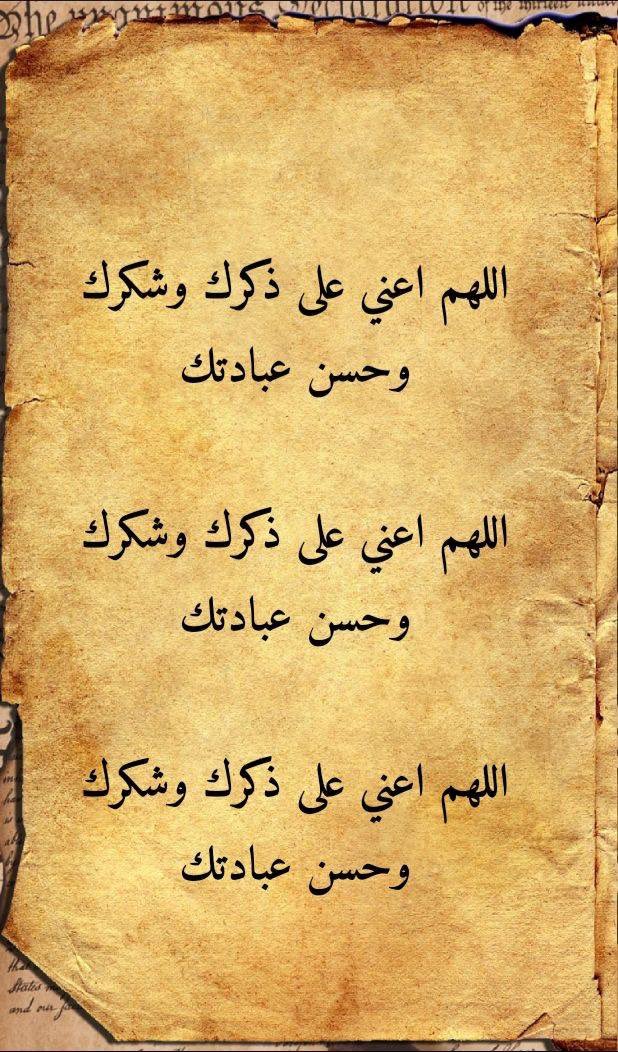 The unanimous Declaration of the thirteen united
اللهم اعني على ذكرك وشكرك
وحسن عبادتك
اللهم اعني على ذكرك وشكرك
وحسن عبادتك
اللهم اعني على ذكرك وشكرك
وحسن عبادتك
that
States
and our